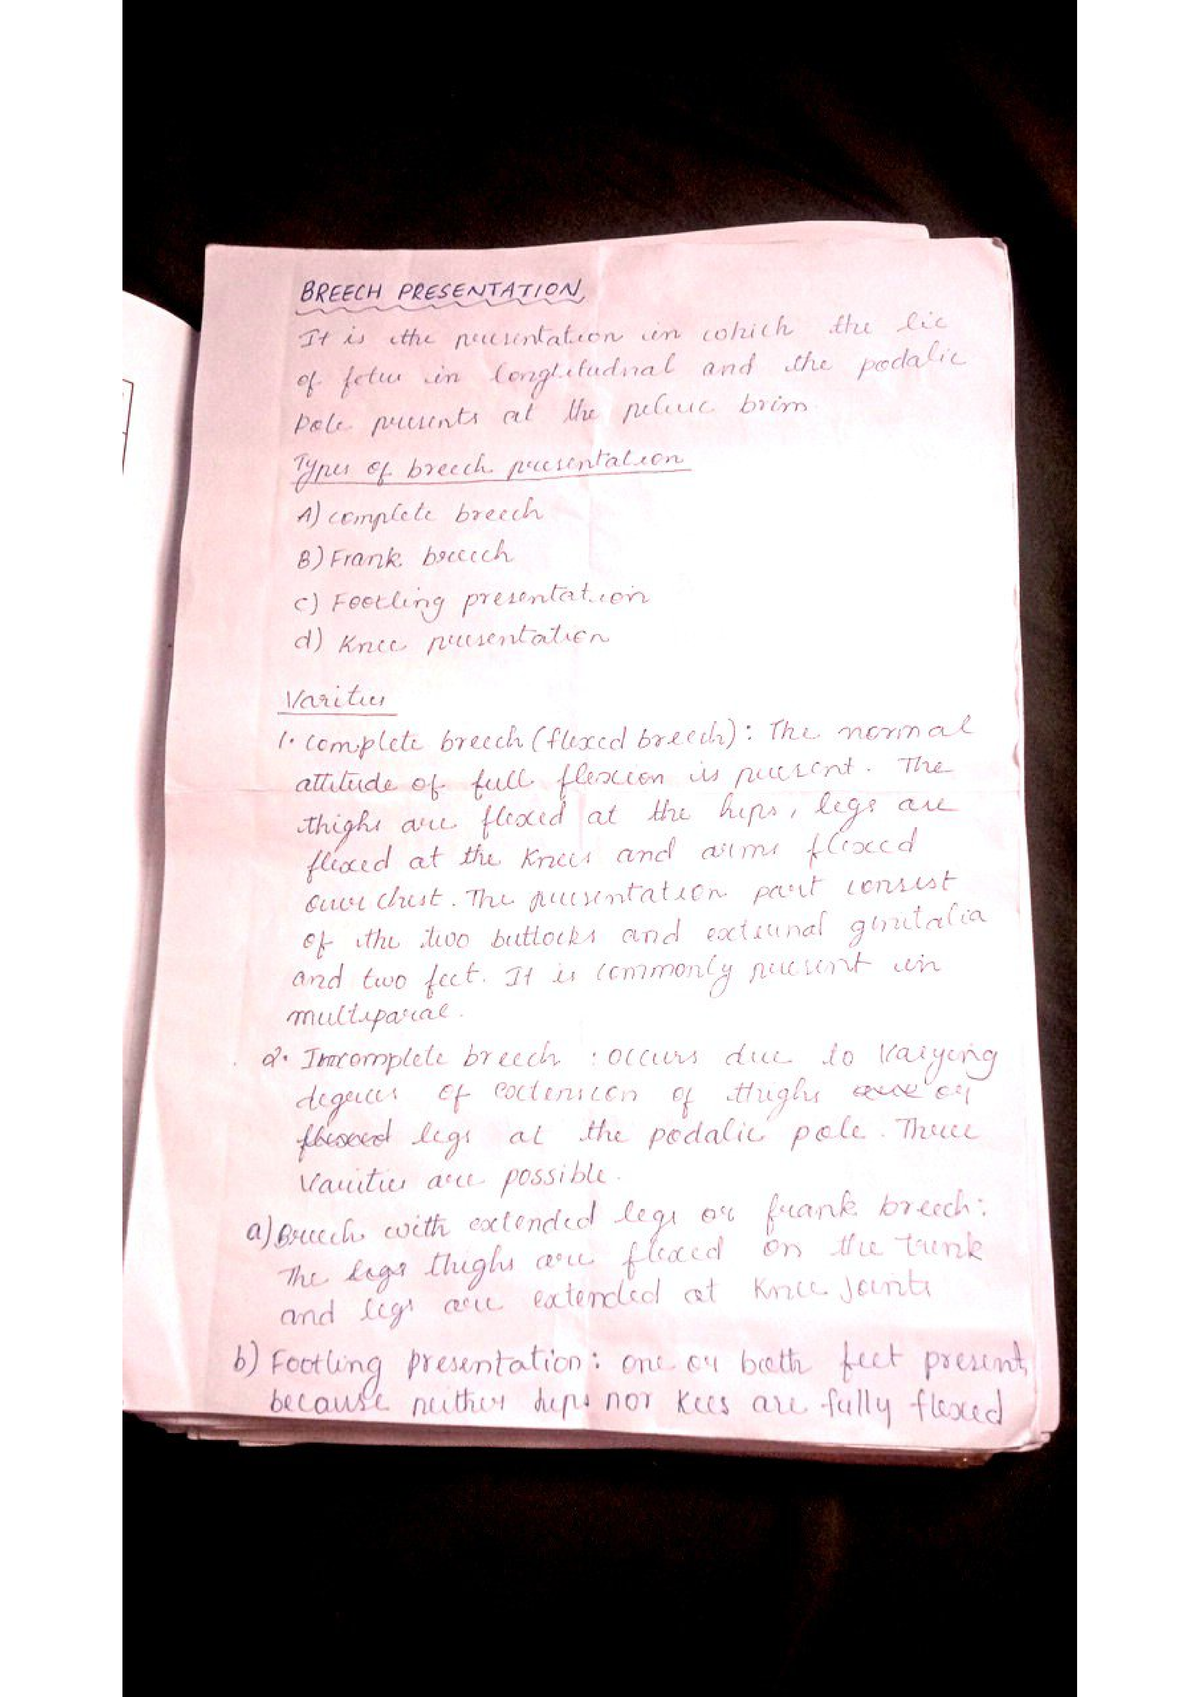 BREECH PRESENTATION
It is the presentation in which the lie
of fetus in longitudnal and the podalic
Pole presents at the pelvic brim.
Types of breech presentation
A) complete breech
B) Frank breech
c) Footling presentation
d) Knee presentation
Varities
1. complete breech (flexed breech): The normal
attitude of full flexion is present. The
thighs are flexed at the hips, legs are
flexed at the knees and arms flexed
over chest. The presentation part consist
of the two buttocks and external genitalia
and two feet. It is commonly present in
multiparae.
2. Incomplete breech : occurs due to varying
degrees of extension of thighs or
legs at the podalic pole. Three
varities are possible.
a) Breech with extended legs or frank breech:
The thighs are flexed on the trunk
and legs are extended at knee joints
b) Footling presentation: one or both feet present,
because neither hips nor kees are fully flexed